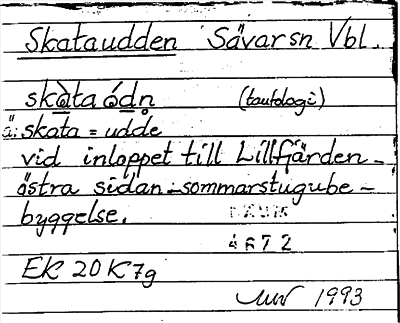 Skataudden Sävar sn Vbl.
skàta ódn̥ (tautologi)
ä: skata = udde
vid inloppet till Lillfjärden -
östra sidan - sommarstugube-
byggelse.
4672
EK 20 K 7g
1993